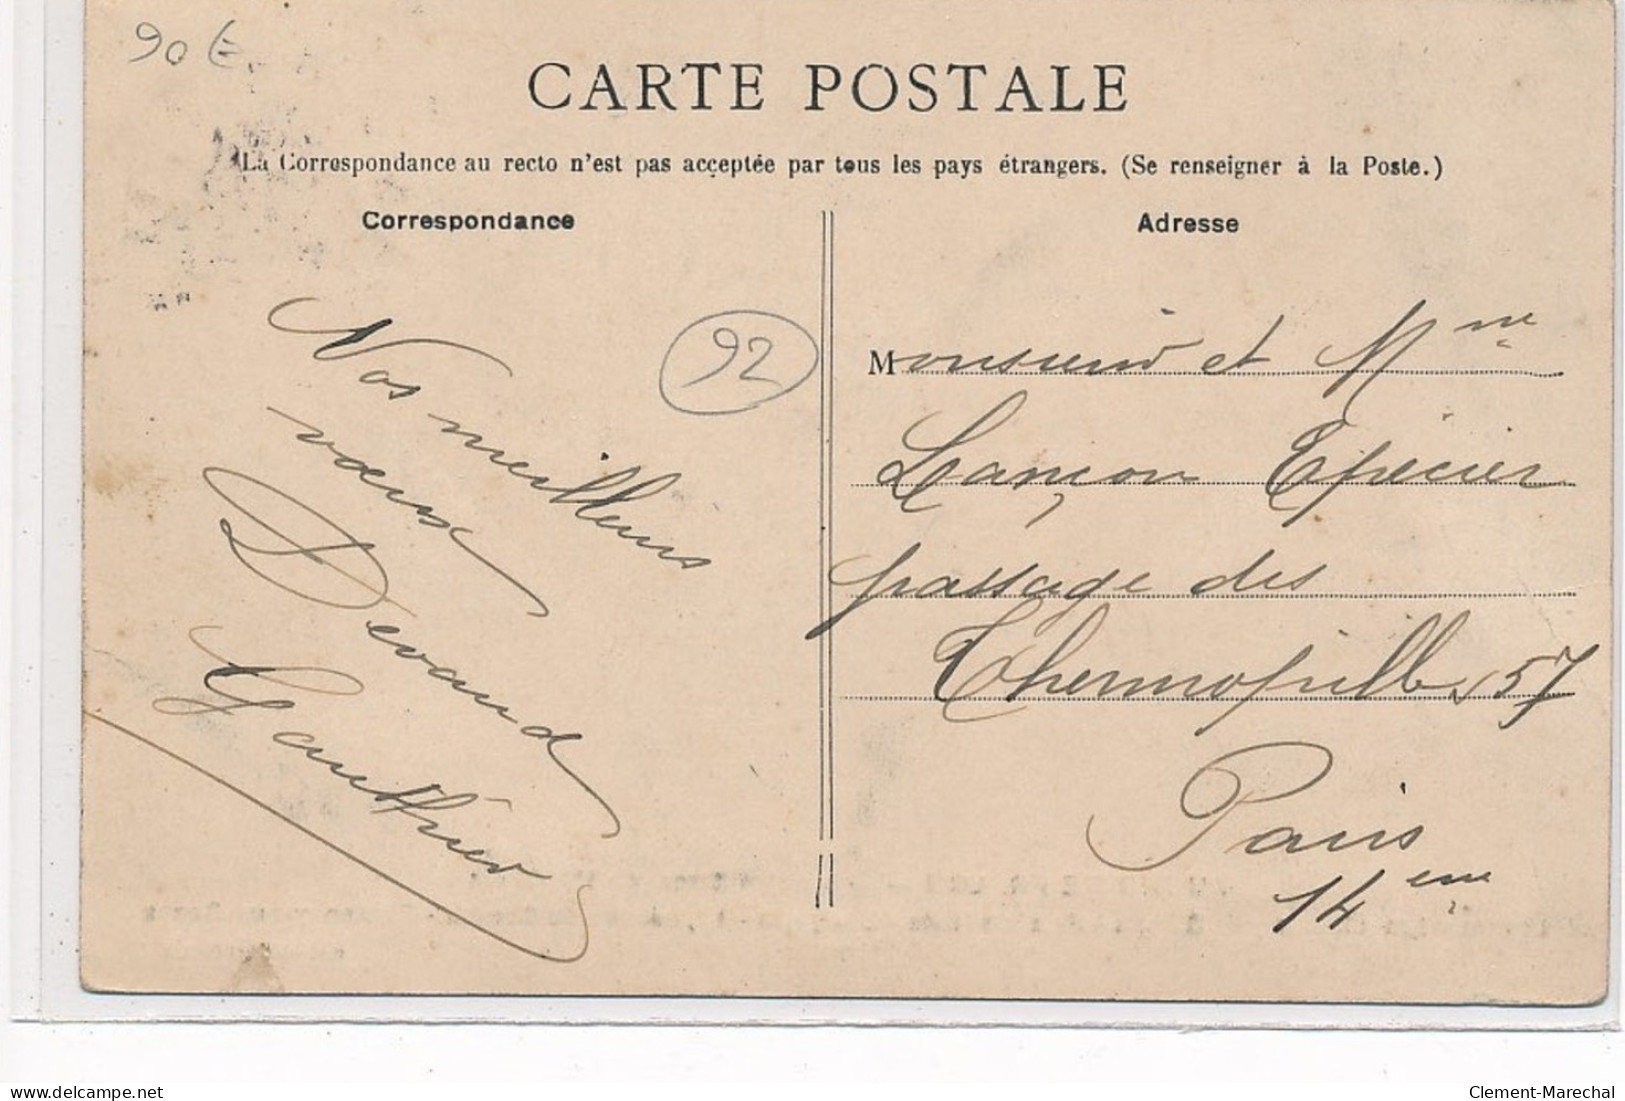 90 €
CARTE POSTALE
La Correspondance au recto n'est pas acceptée par tous les pays étrangers. (Se renseigner à la Poste.)
Correspondance
Adresse
Nos meilleurs
vœux
Devaud
Gauthier
92
Monsieur et Mme
Lançon Epicier
passage des
Thermopille 57
Paris
14eme
www.delcampe.net
Clement-Marechal